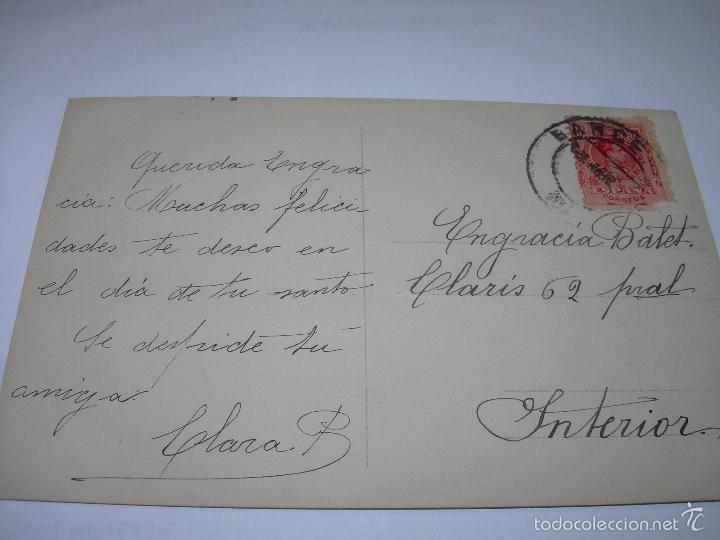 Querida Engra
cia: Muchas felici
dades te deseo en
el día de tu santo
Se despide tu
amiga
Clara B
BARCE
ESPAÑA
CORREOS
Engracía Balet.
Clarís 62 pral
Interior.
todocoleccion.net